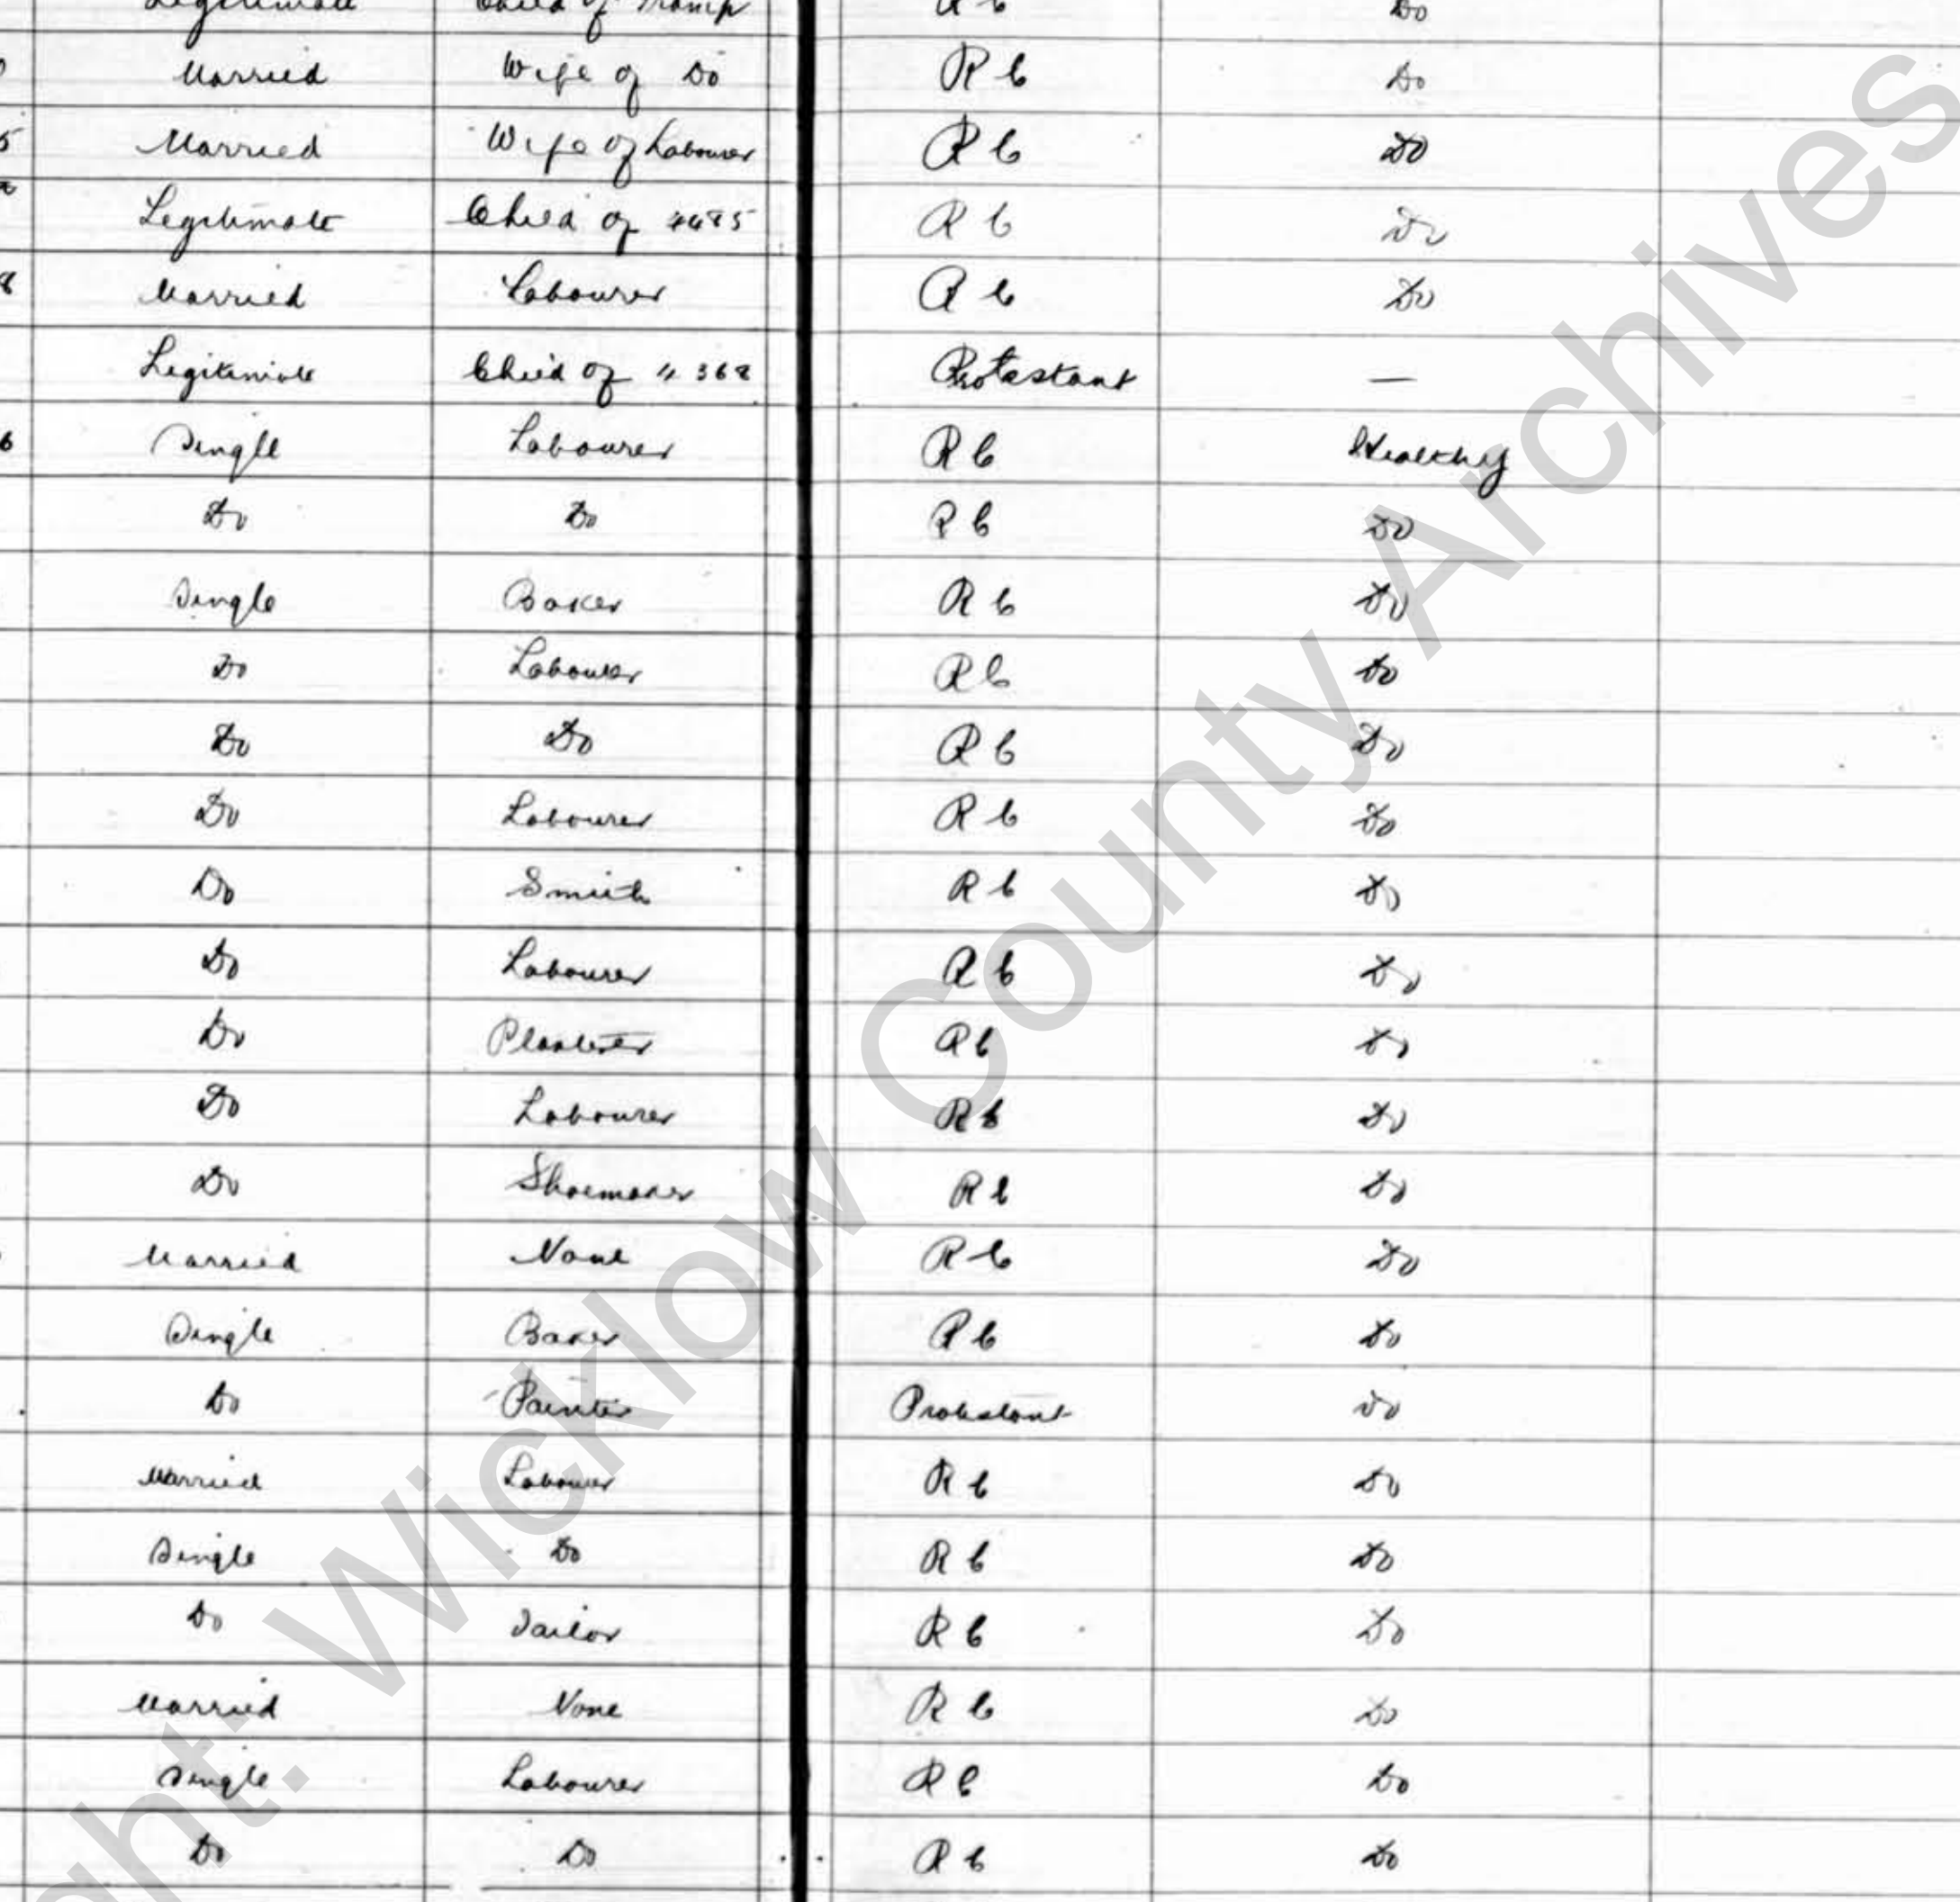 Legitimate Child of Tramp R C Do
Married Wife of Do R C Do
5 Married Wife of Labourer R C Do
Legitimate Child of 4485 R C Do
8 Married Labourer R C Do
Legitimate Child of 4368 Protestant —
6 Single Labourer R C Healthy
Do Do R C Do
Single Baker R C Do
Do Labourer R C Do
Do Do R C Do
Do Labourer R C Do
Do Smith R C Do
Do Labourer R C Do
Do Plasterer R C Do
Do Labourer R C Do
Do Shoemaker R C Do
Married None R C Do
Single Baker R C Do
Do Painter Protestant Do
Married Labourer R C Do
Single Do R C Do
Do Tailor R C Do
Married None R C Do
Single Labourer R C Do
Do Do R C Do
ght: Wicklow County Archives